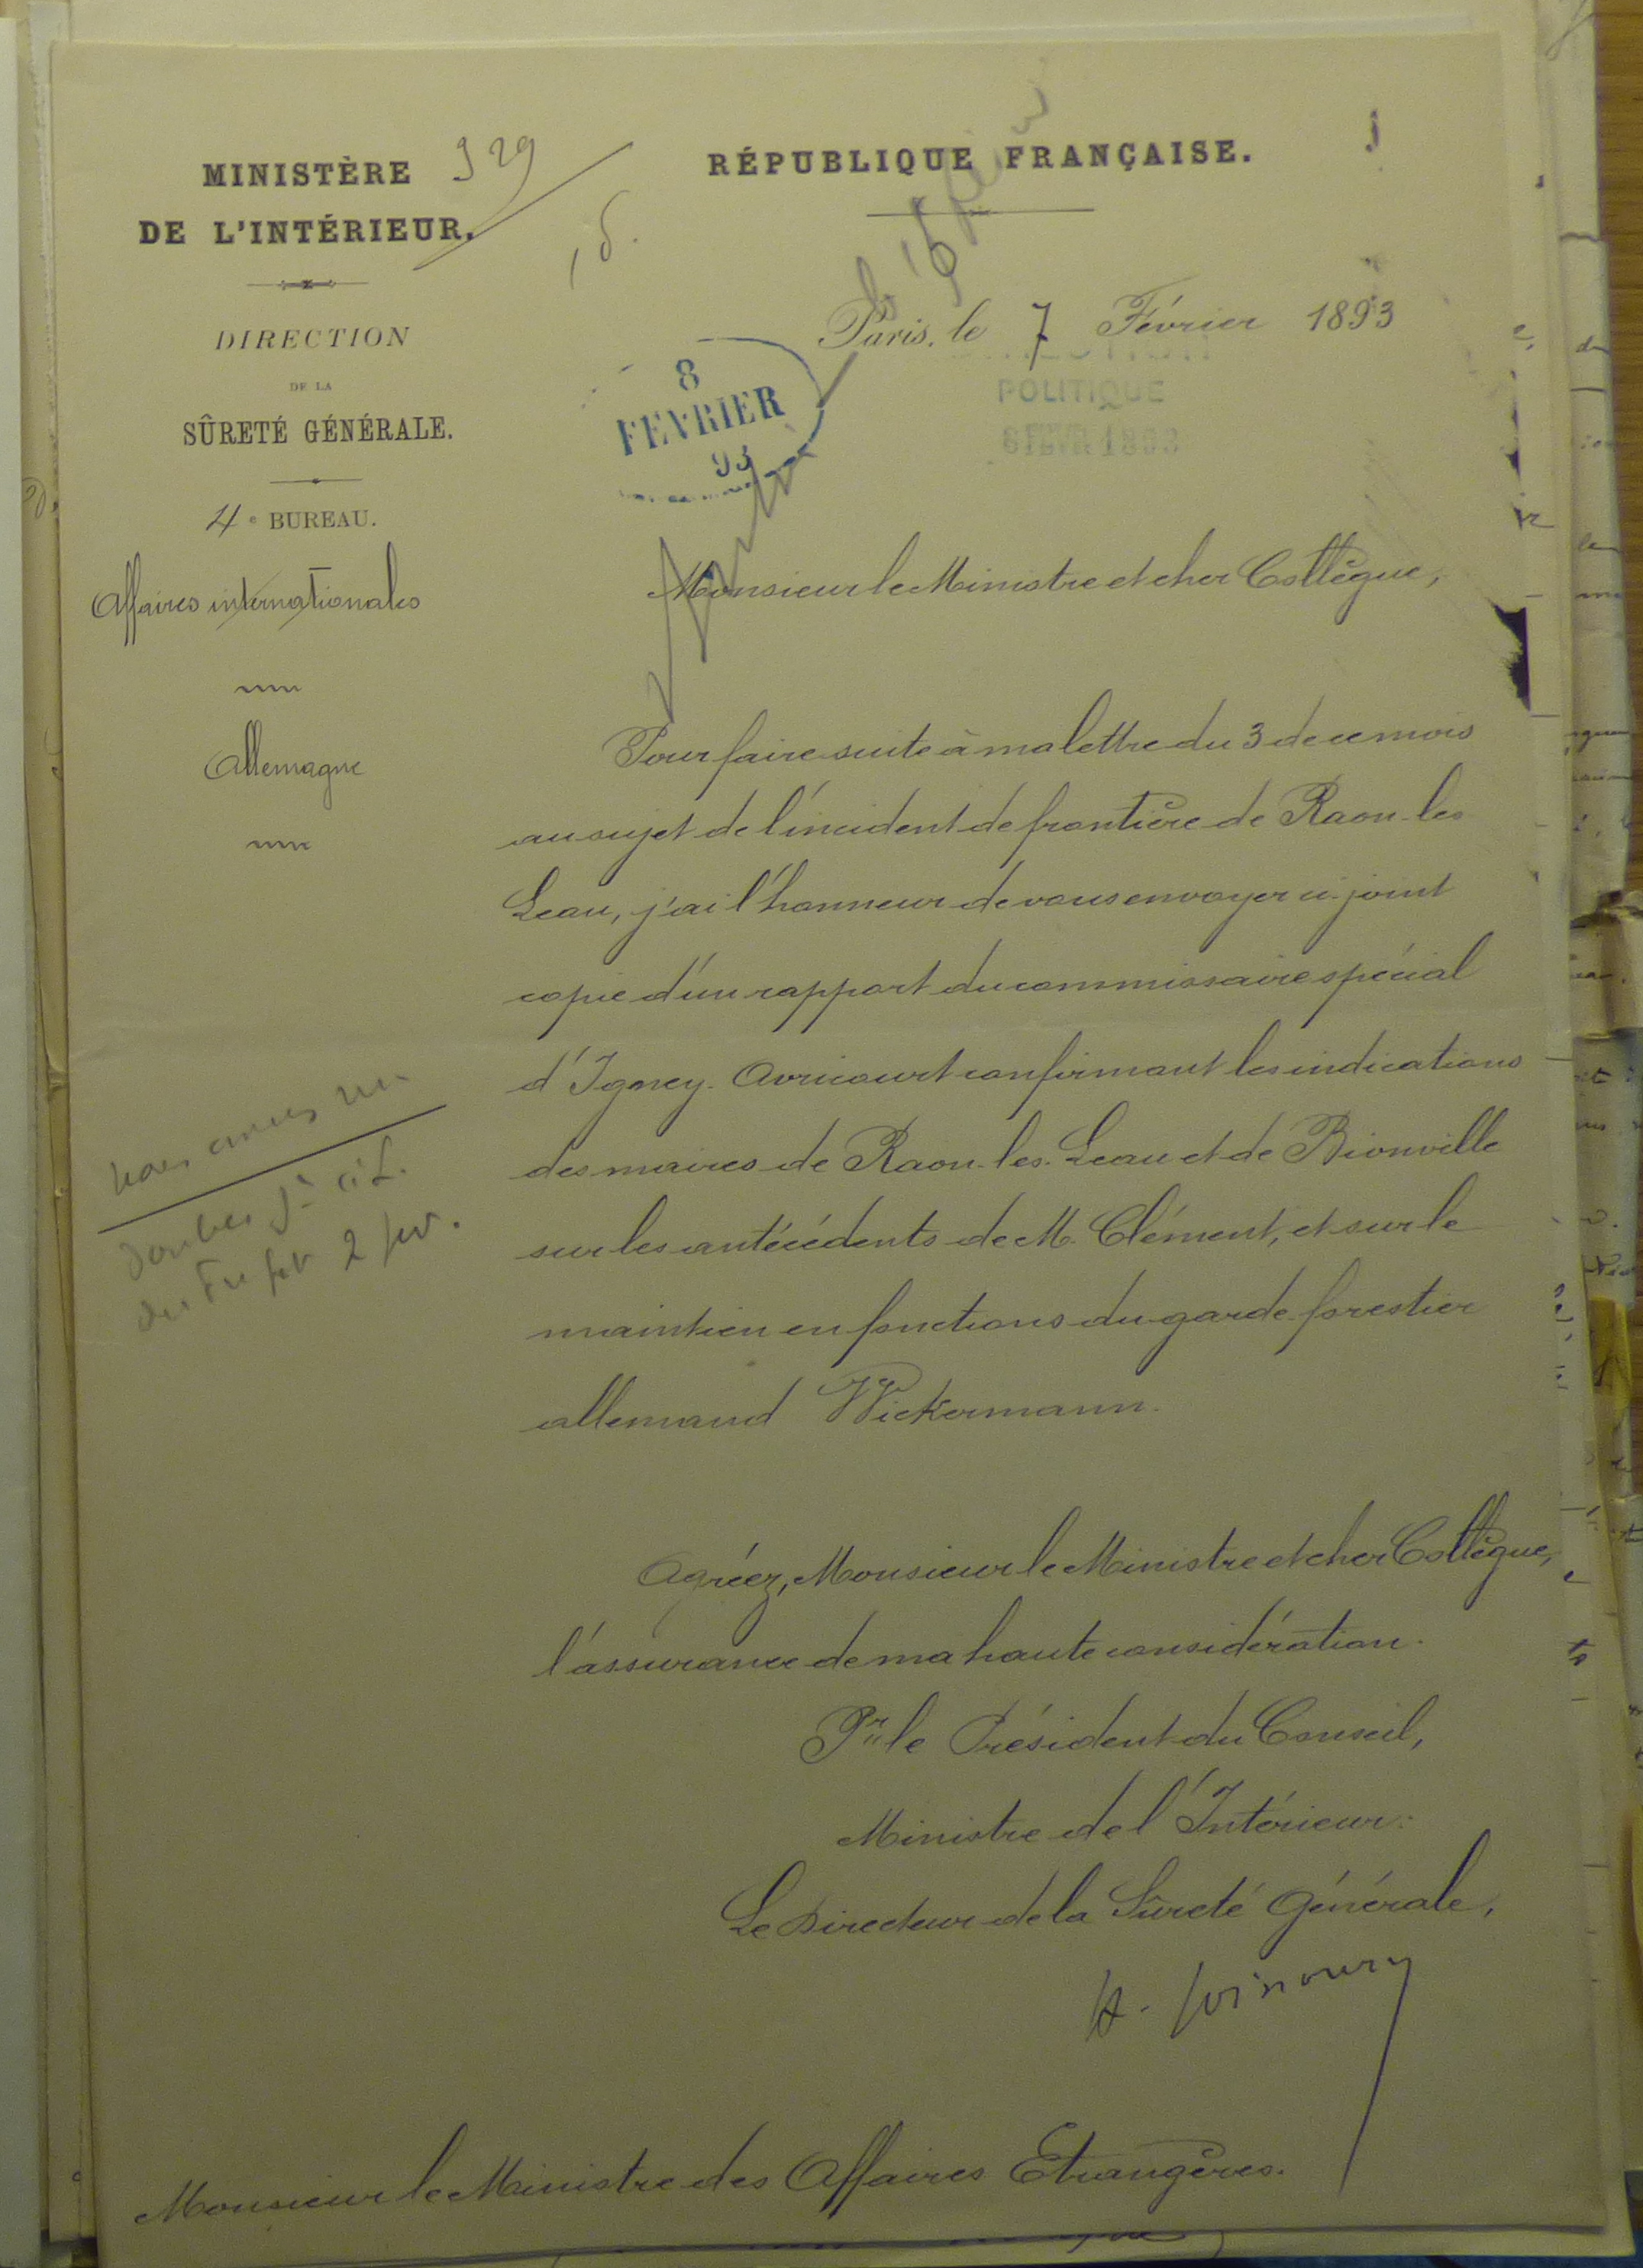 MINISTÈRE
DE L'INTÉRIEUR.
929
15.
RÉPUBLIQUE FRANÇAISE.
DIRECTION
DE LA
SÛRETÉ GÉNÉRALE.
4e BUREAU.
Affaires internationales
Allemagne
Paris, le 7 Février 1893
8
FEVRIER
93
POLITIQUE
Monsieur le Ministre et cher Collègue,
Pour faire suite à ma lettre du 3 de ce mois
au sujet de l'incident de frontière de Raon-les-
Leau, j'ai l'honneur de vous envoyer ci-joint
copie d'un rapport du commissaire spécial
d'Igney-Avricourt confirmant les indications
des maires de Raon-les-Leau et de Bionville
sur les antécédents de M. Clément, et sur le
maintien en fonctions du garde-forestier
allemand Wickermann.
2 fev.
Agréez, Monsieur le Ministre et cher Collègue,
l'assurance de ma haute considération.
Pr le Président du Conseil,
Ministre de l'Intérieur:
Le Directeur de la Sûreté Générale,
Monsieur le Ministre des Affaires Etrangères.